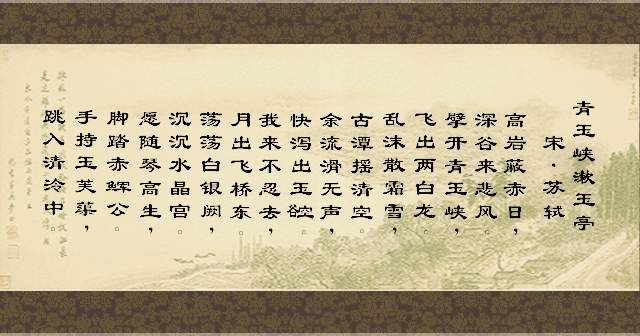 青玉峡漱玉亭
宋·苏轼
高岩蔽赤日，
深谷来悲风。
擘开青玉峡，
飞出两白龙。
乱沫散霜雪，
古潭摇清空。
余流滑无声，
快泻出玉欲。
我来不忍去，
月出飞桥东。
荡荡白银阙，
沉沉水晶宫。
愿随琴高生，
脚踏赤公。
手持玉芙蕖，
跳入清泠中。